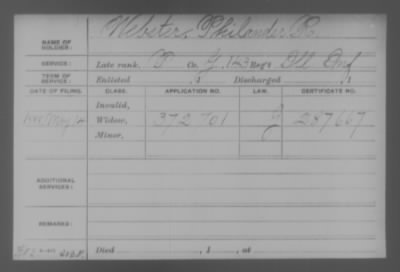 NAME OF HOLDER: Webster, Philander
SERVICE: Late rank, P Co. G, 143 Reg't Ill Inf
TERM OF SERVICE: Enlisted , 1 Discharged , 1
DATE OF FILING. CLASS. APPLICATION NO. LAW. CERTIFICATE NO.
Invalid,
Widow, 372701 287667
Minor,
ADDITIONAL SERVICES:
REMARKS:
Died , 1 , at